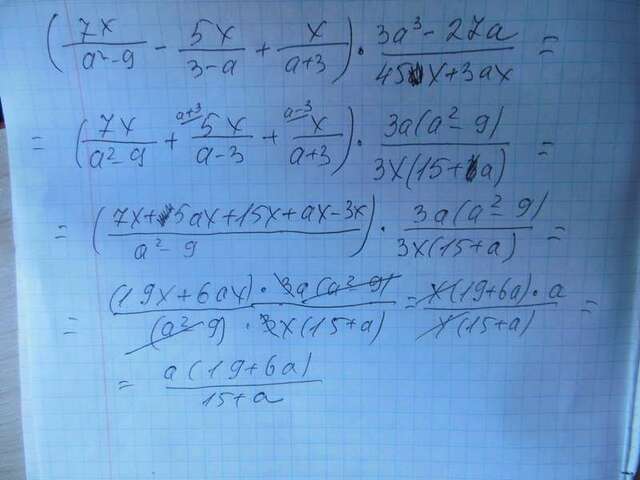 (7x/(a²-9) - 5x/(3-a) + x/(a+3)) · (3a³-27a)/(45x+3ax) =
= (7x/(a²-9) + a+3 5x/(a-3) + a-3 x/(a+3)) · 3a(a²-9)/(3x(15+a)) =
= ((7x+5ax+15x+ax-3x)/(a²-9)) · 3a(a²-9)/(3x(15+a)) =
= (19x+6ax)·3a(a²-9)/((a²-9)·3x(15+a)) = x(19+6a)·a/(x(15+a)) =
= a(19+6a)/(15+a)